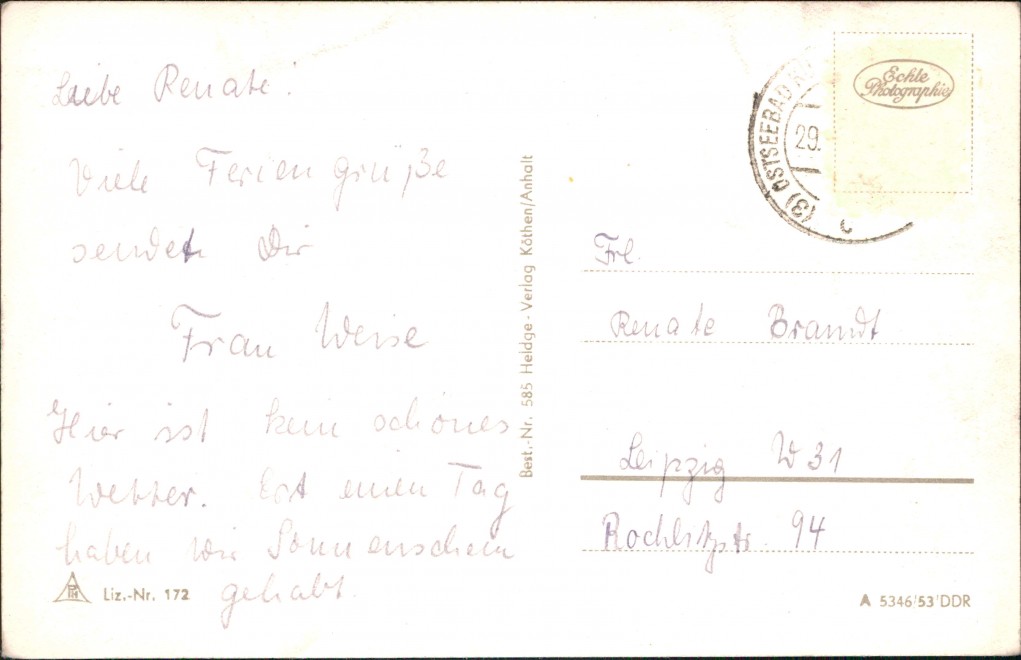 Liebe Renate!
Viele Feriengrüße
sendet Dir
Frau Weise
Hier ist kein schönes
Wetter. Erst einen Tag
haben wir Sonnenschein
gehabt.
Liz.-Nr. 172
Best.-Nr. 585 Heldge-Verlag Köthen/Anhalt
(3) OSTSEEBAD
29.
c
Echte
Photographie
Frl.
Renate Brandt
Leipzig W 31
Rochlitzstr. 94
A 5346/53/DDR